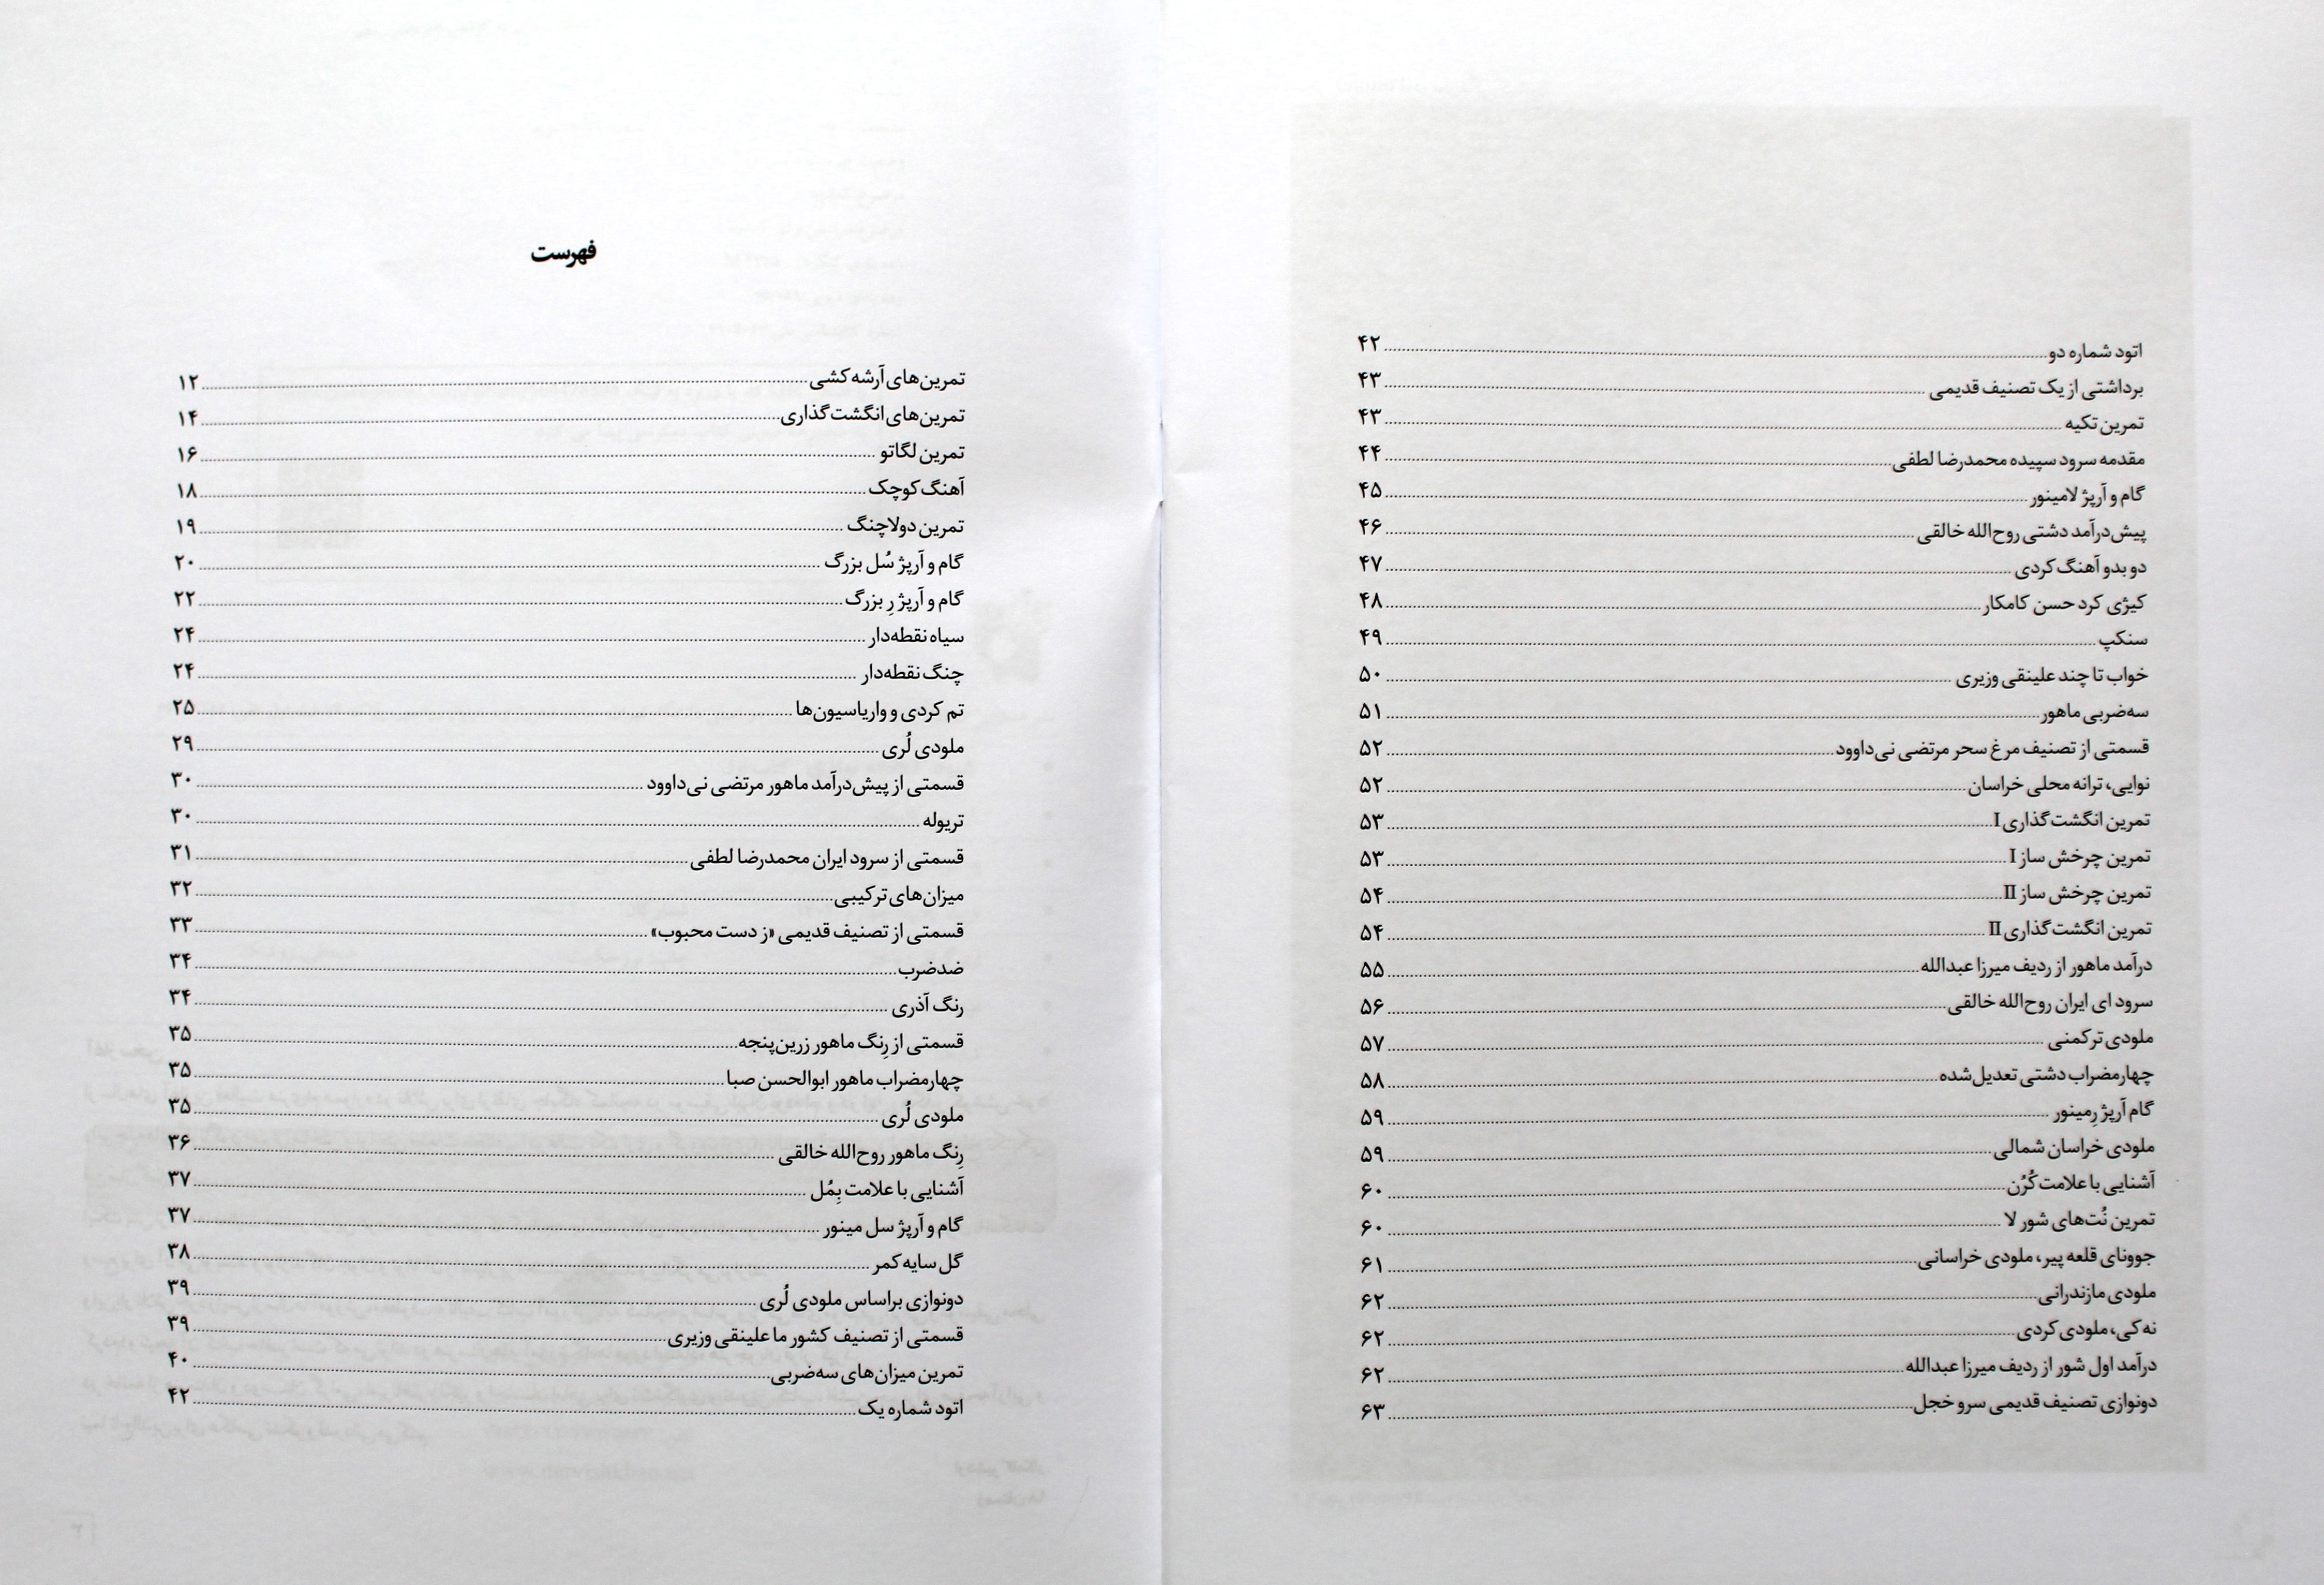 فهرست
تمرین‌های آرشه‌کشی ۱۲
تمرین‌های انگشت‌گذاری ۱۴
تمرین لگاتو ۱۶
آهنگ کوچک ۱۸
تمرین دولاچنگ ۱۹
گام و آرپژ سُل بزرگ ۲۰
گام و آرپژ رِ بزرگ ۲۲
سیاه نقطه‌دار ۲۴
چنگ نقطه‌دار ۲۴
تم کردی و واریاسیون‌ها ۲۵
ملودی لُری ۲۹
قسمتی از پیش‌درآمد ماهور مرتضی نی‌داوود ۳۰
تریوله ۳۰
قسمتی از سرود ایران محمدرضا لطفی ۳۱
میزان‌های ترکیبی ۳۲
قسمتی از تصنیف قدیمی «ز دست محبوب» ۳۳
ضدضرب ۳۴
رنگ آذری ۳۴
قسمتی از رِنگ ماهور زرین‌پنجه ۳۵
چهارمضراب ماهور ابوالحسن صبا ۳۵
ملودی لُری ۳۵
رِنگ ماهور روح‌الله خالقی ۳۶
آشنایی با علامت بِمُل ۳۷
گام و آرپژ سل مینور ۳۷
گل سایه کمر ۳۸
دونوازی براساس ملودی لُری ۳۹
قسمتی از تصنیف کشور ما علینقی وزیری ۳۹
تمرین میزان‌های سه‌ضربی ۴۰
اتود شماره یک ۴۲
اتود شماره دو ۴۲
برداشتی از یک تصنیف قدیمی ۴۳
تمرین تکیه ۴۳
مقدمه سرود سپیده محمدرضا لطفی ۴۴
گام و آرپژ لامینور ۴۵
پیش‌درآمد دشتی روح‌الله خالقی ۴۶
دو بدو آهنگ کردی ۴۷
کیژی کرد حسن کامکار ۴۸
سنکپ ۴۹
خواب تا چند علینقی وزیری ۵۰
سه‌ضربی ماهور ۵۱
قسمتی از تصنیف مرغ سحر مرتضی نی‌داوود ۵۲
نوایی، ترانه محلی خراسان ۵۲
تمرین انگشت‌گذاری I ۵۳
تمرین چرخش ساز I ۵۳
تمرین چرخش ساز II ۵۴
تمرین انگشت‌گذاری II ۵۴
درآمد ماهور از ردیف میرزا عبدالله ۵۵
سرود ای ایران روح‌الله خالقی ۵۶
ملودی ترکمنی ۵۷
چهارمضراب دشتی تعدیل‌شده ۵۸
گام آرپژ رِمینور ۵۹
ملودی خراسان شمالی ۵۹
آشنایی با علامت کُرُن ۶۰
تمرین نُت‌های شور لا ۶۰
جوونای قلعه پیر، ملودی خراسانی ۶۱
ملودی مازندرانی ۶۲
نه کی، ملودی کردی ۶۲
درآمد اول شور از ردیف میرزا عبدالله ۶۲
دونوازی تصنیف قدیمی سرو خجل ۶۳